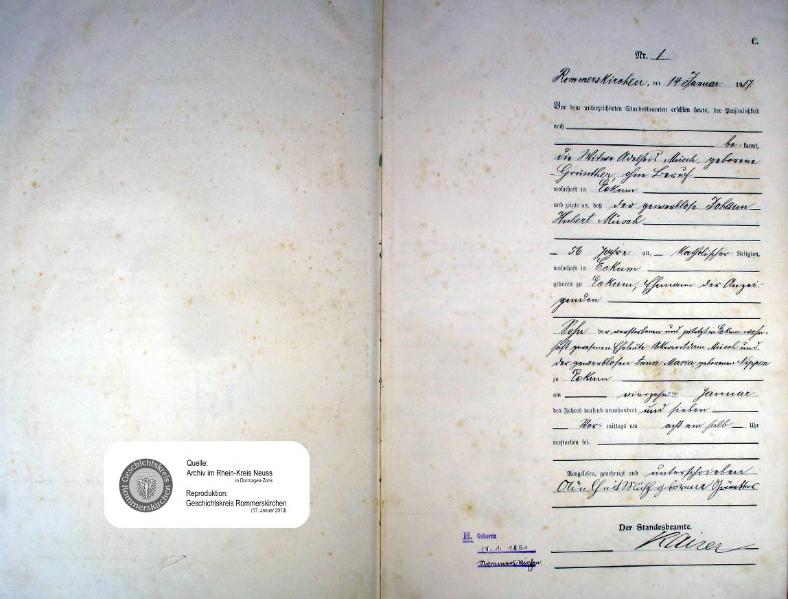 Geschichtskreis Rommerskirchen
Quelle:
Archiv im Rhein-Kreis Neuss
in Dormagen-Zons
Reproduktion:
Geschichtskreis Rommerskirchen
(17. Januar 2013)
C.
Nr. 1
Rommerskirchen, am 14 Januar 1907
Vor dem unterzeichneten Standesbeamten erschien heute, der Persönlichkeit
nach
be kannt,
die Witwe Adelheid Müsch, geborene
Günther, ohne Beruf
wohnhaft in Eckum
und zeigte an, daß der gewerblose Johann
Hubert Müsch
56 Jahre alt, katholischer Religion,
wohnhaft in Eckum
geboren zu Eckum, Ehemann der Anzei-
genden
Sohn der verstorbenen und zuletzt in Eckum wohn-
haft gewesenen Eheleute Müsch und
der gewerblosen Anna Maria geborenen
zu Eckum
am vierzehn Januar
des Jahres tausend neunhundert und sieben
Vor mittags um acht ein halb Uhr
verstorben sei.
Vorgelesen, genehmigt und unterschrieben
geborene Günther
Der Standesbeamte.
H. Geboren
1851
Rommerskirchen